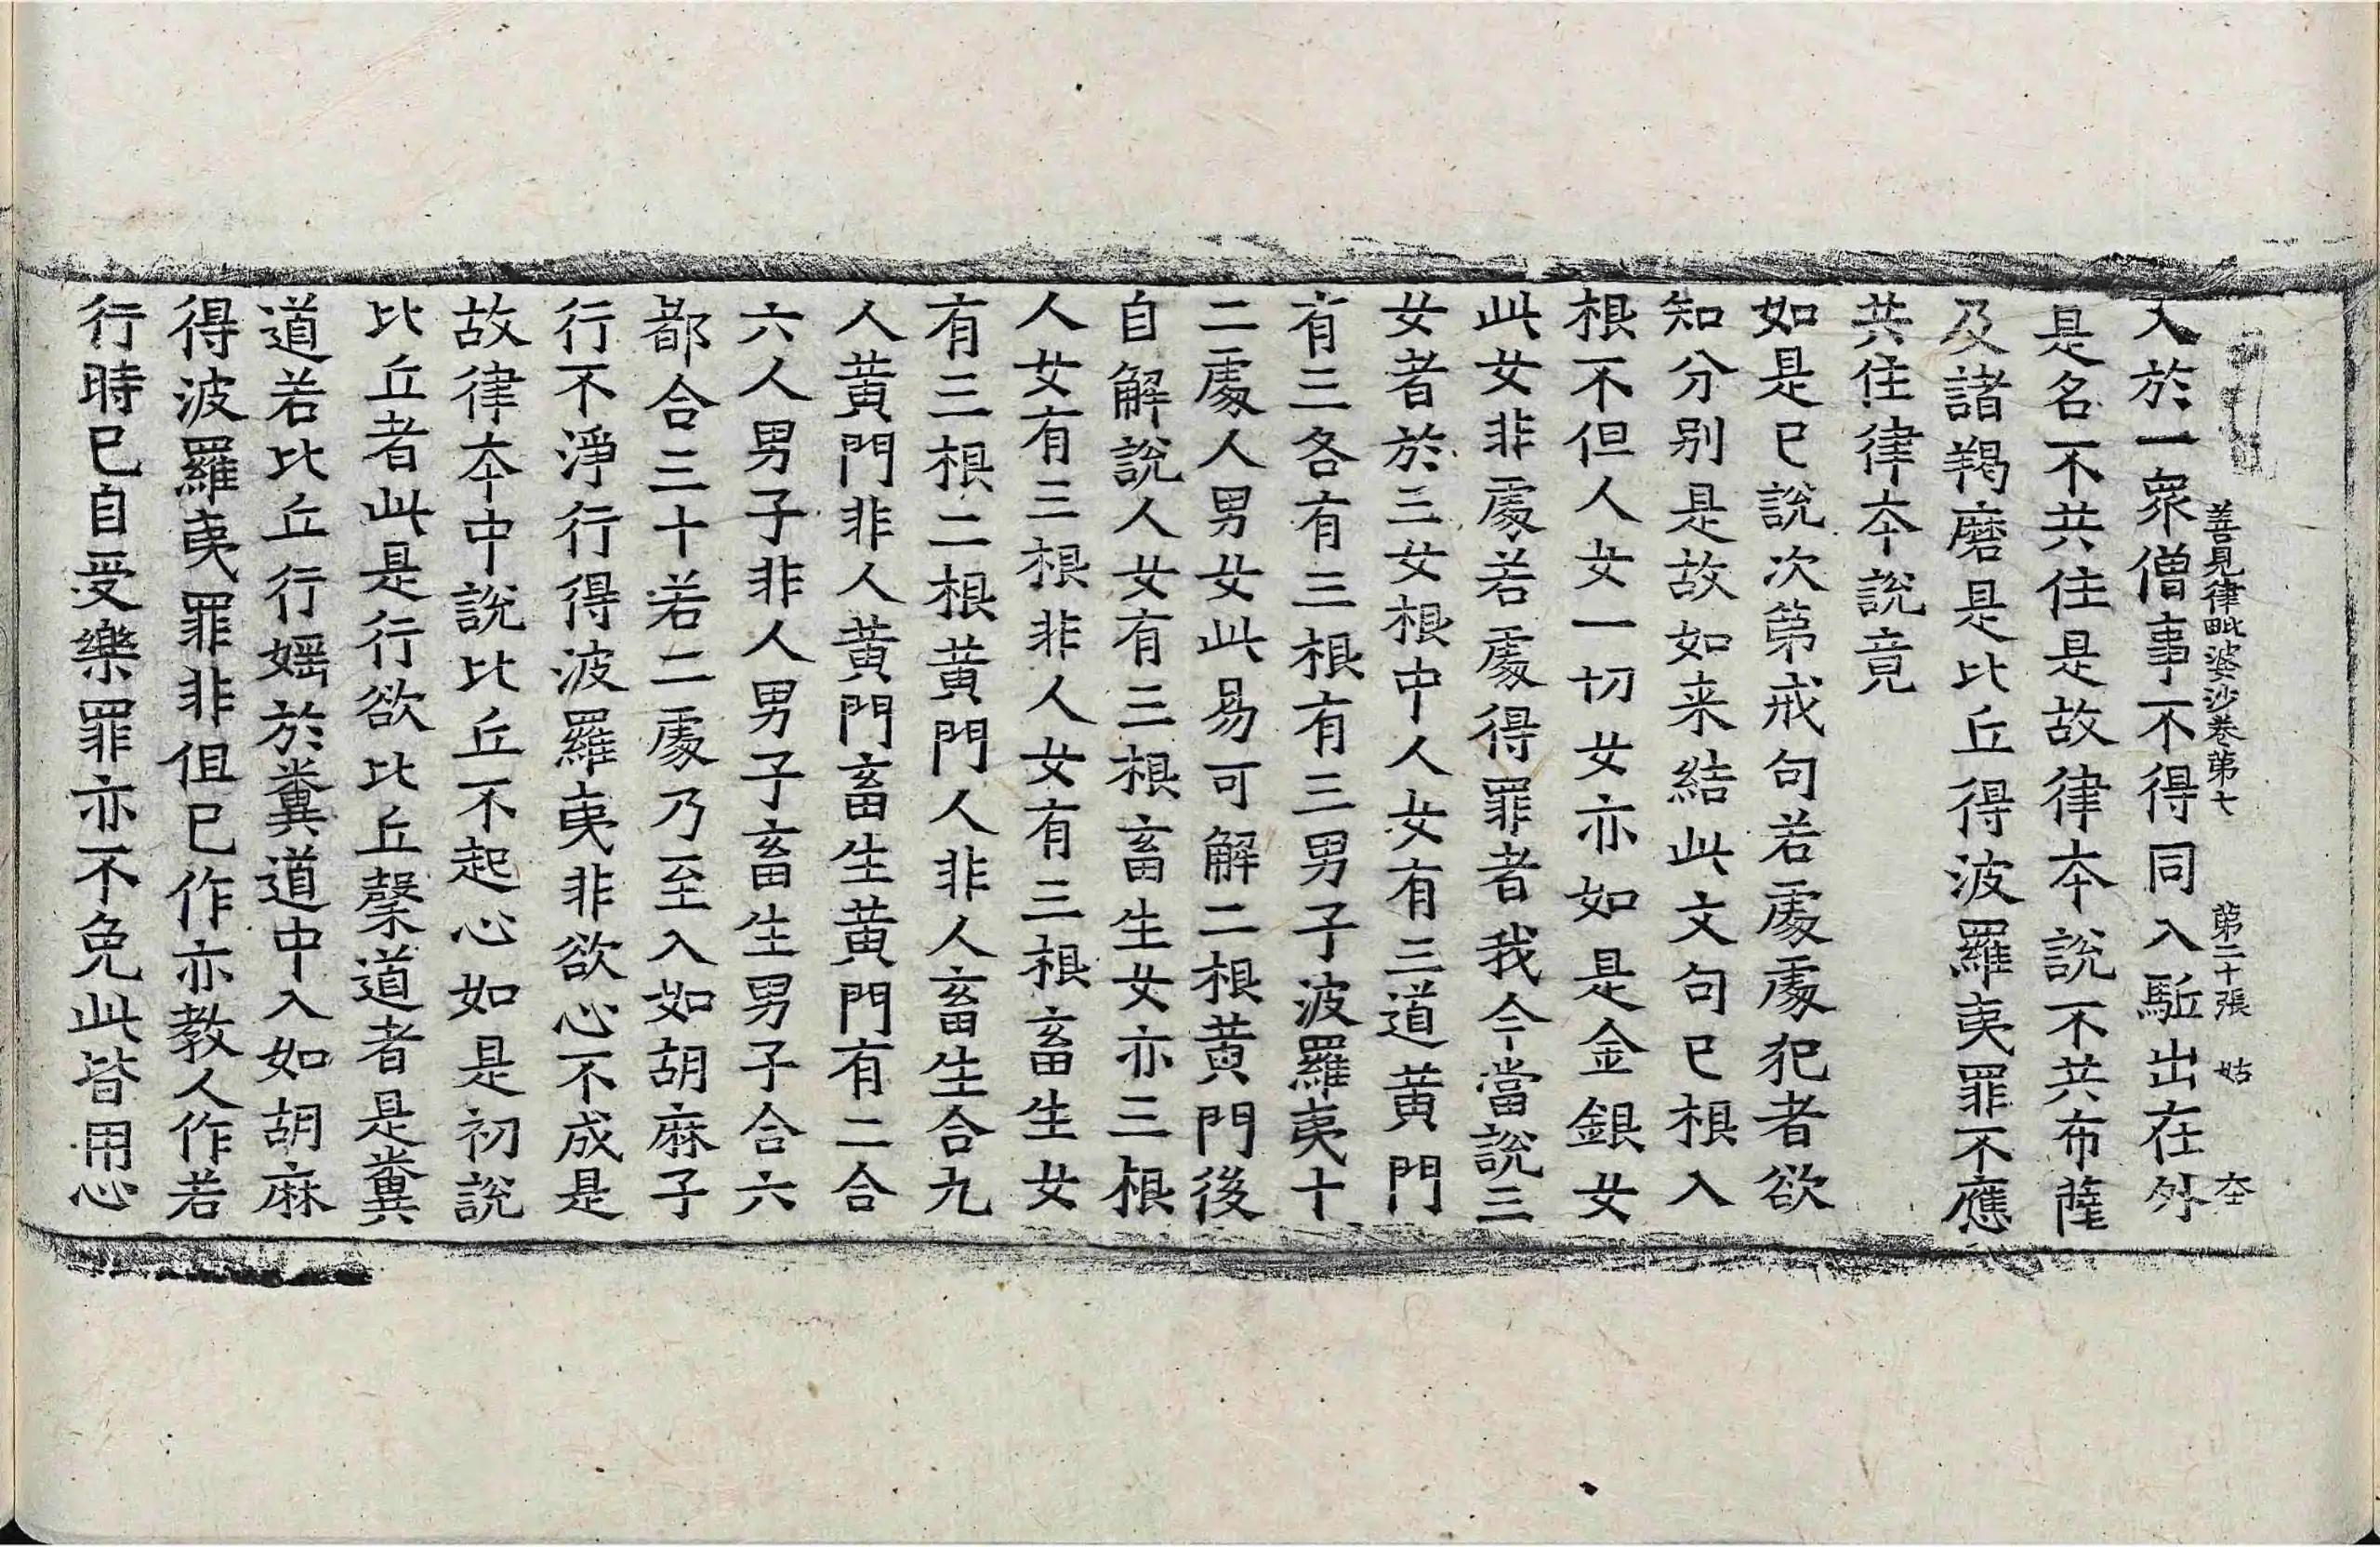 善見律毗婆沙卷第七 第二十張 姑
入於一衆僧事不得同入駈出在外
是名不共住是故律本說不共布薩
及諸羯磨是比丘得波羅夷罪不應
共住律本說竟
如是已說次第戒句若處處犯者欲
知分別是故如来結此文句已根入
根不但人女一切女亦如是金銀女
此女非處若處得罪者我今當說三
女者於三女根中人女有三道黃門
有三各有三根有三男子波羅夷十
二處人男女此易可解二根黃門後
自解說人女有三根畜生女亦三根
人女有三根非人女有三根畜生女
有三根二根黃門人非人畜生合九
人黃門非人黃門畜生黃門有二合
六人男子非人男子畜生男子合六
都合三十若二處乃至入如胡麻子
行不淨行得波羅夷非欲心不成是
故律本中說比丘不起心如是初說
比丘者此是行欲比丘縏道者是糞
道若比丘行婬於糞道中入如胡麻
得波羅夷罪非但已作亦教人作若
行時已自受樂罪亦不免此皆用心